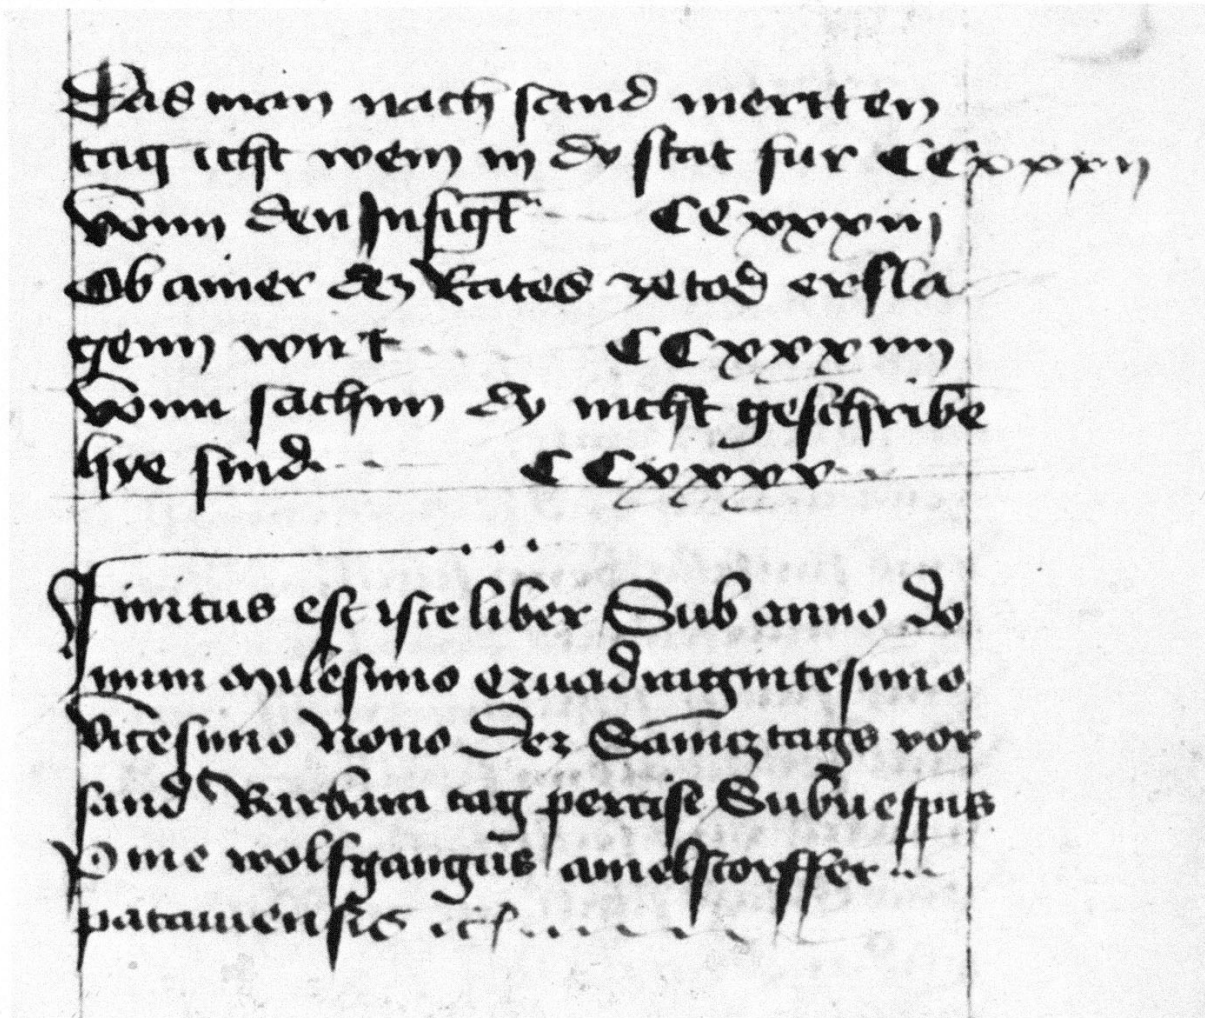 Das man nach sand mertten
tag icht wein in dy stat fur CCxxxij
Vonn den Insigł CCxxxiij
Ob ainer dez Rates ze tod ersla
genn wirt CCxxxiiij
Vonn sachnn dy nicht geschribē
hye sind CCxxxv
Finitus est iste liber Sub anno do
mini Milesimo qzuadringintesimo
Vicesimo Nono Dez Sāmcztags vor
sand Barbara tag percise Sub vespris
P me wolfgangus amelstorffer
patauiensis